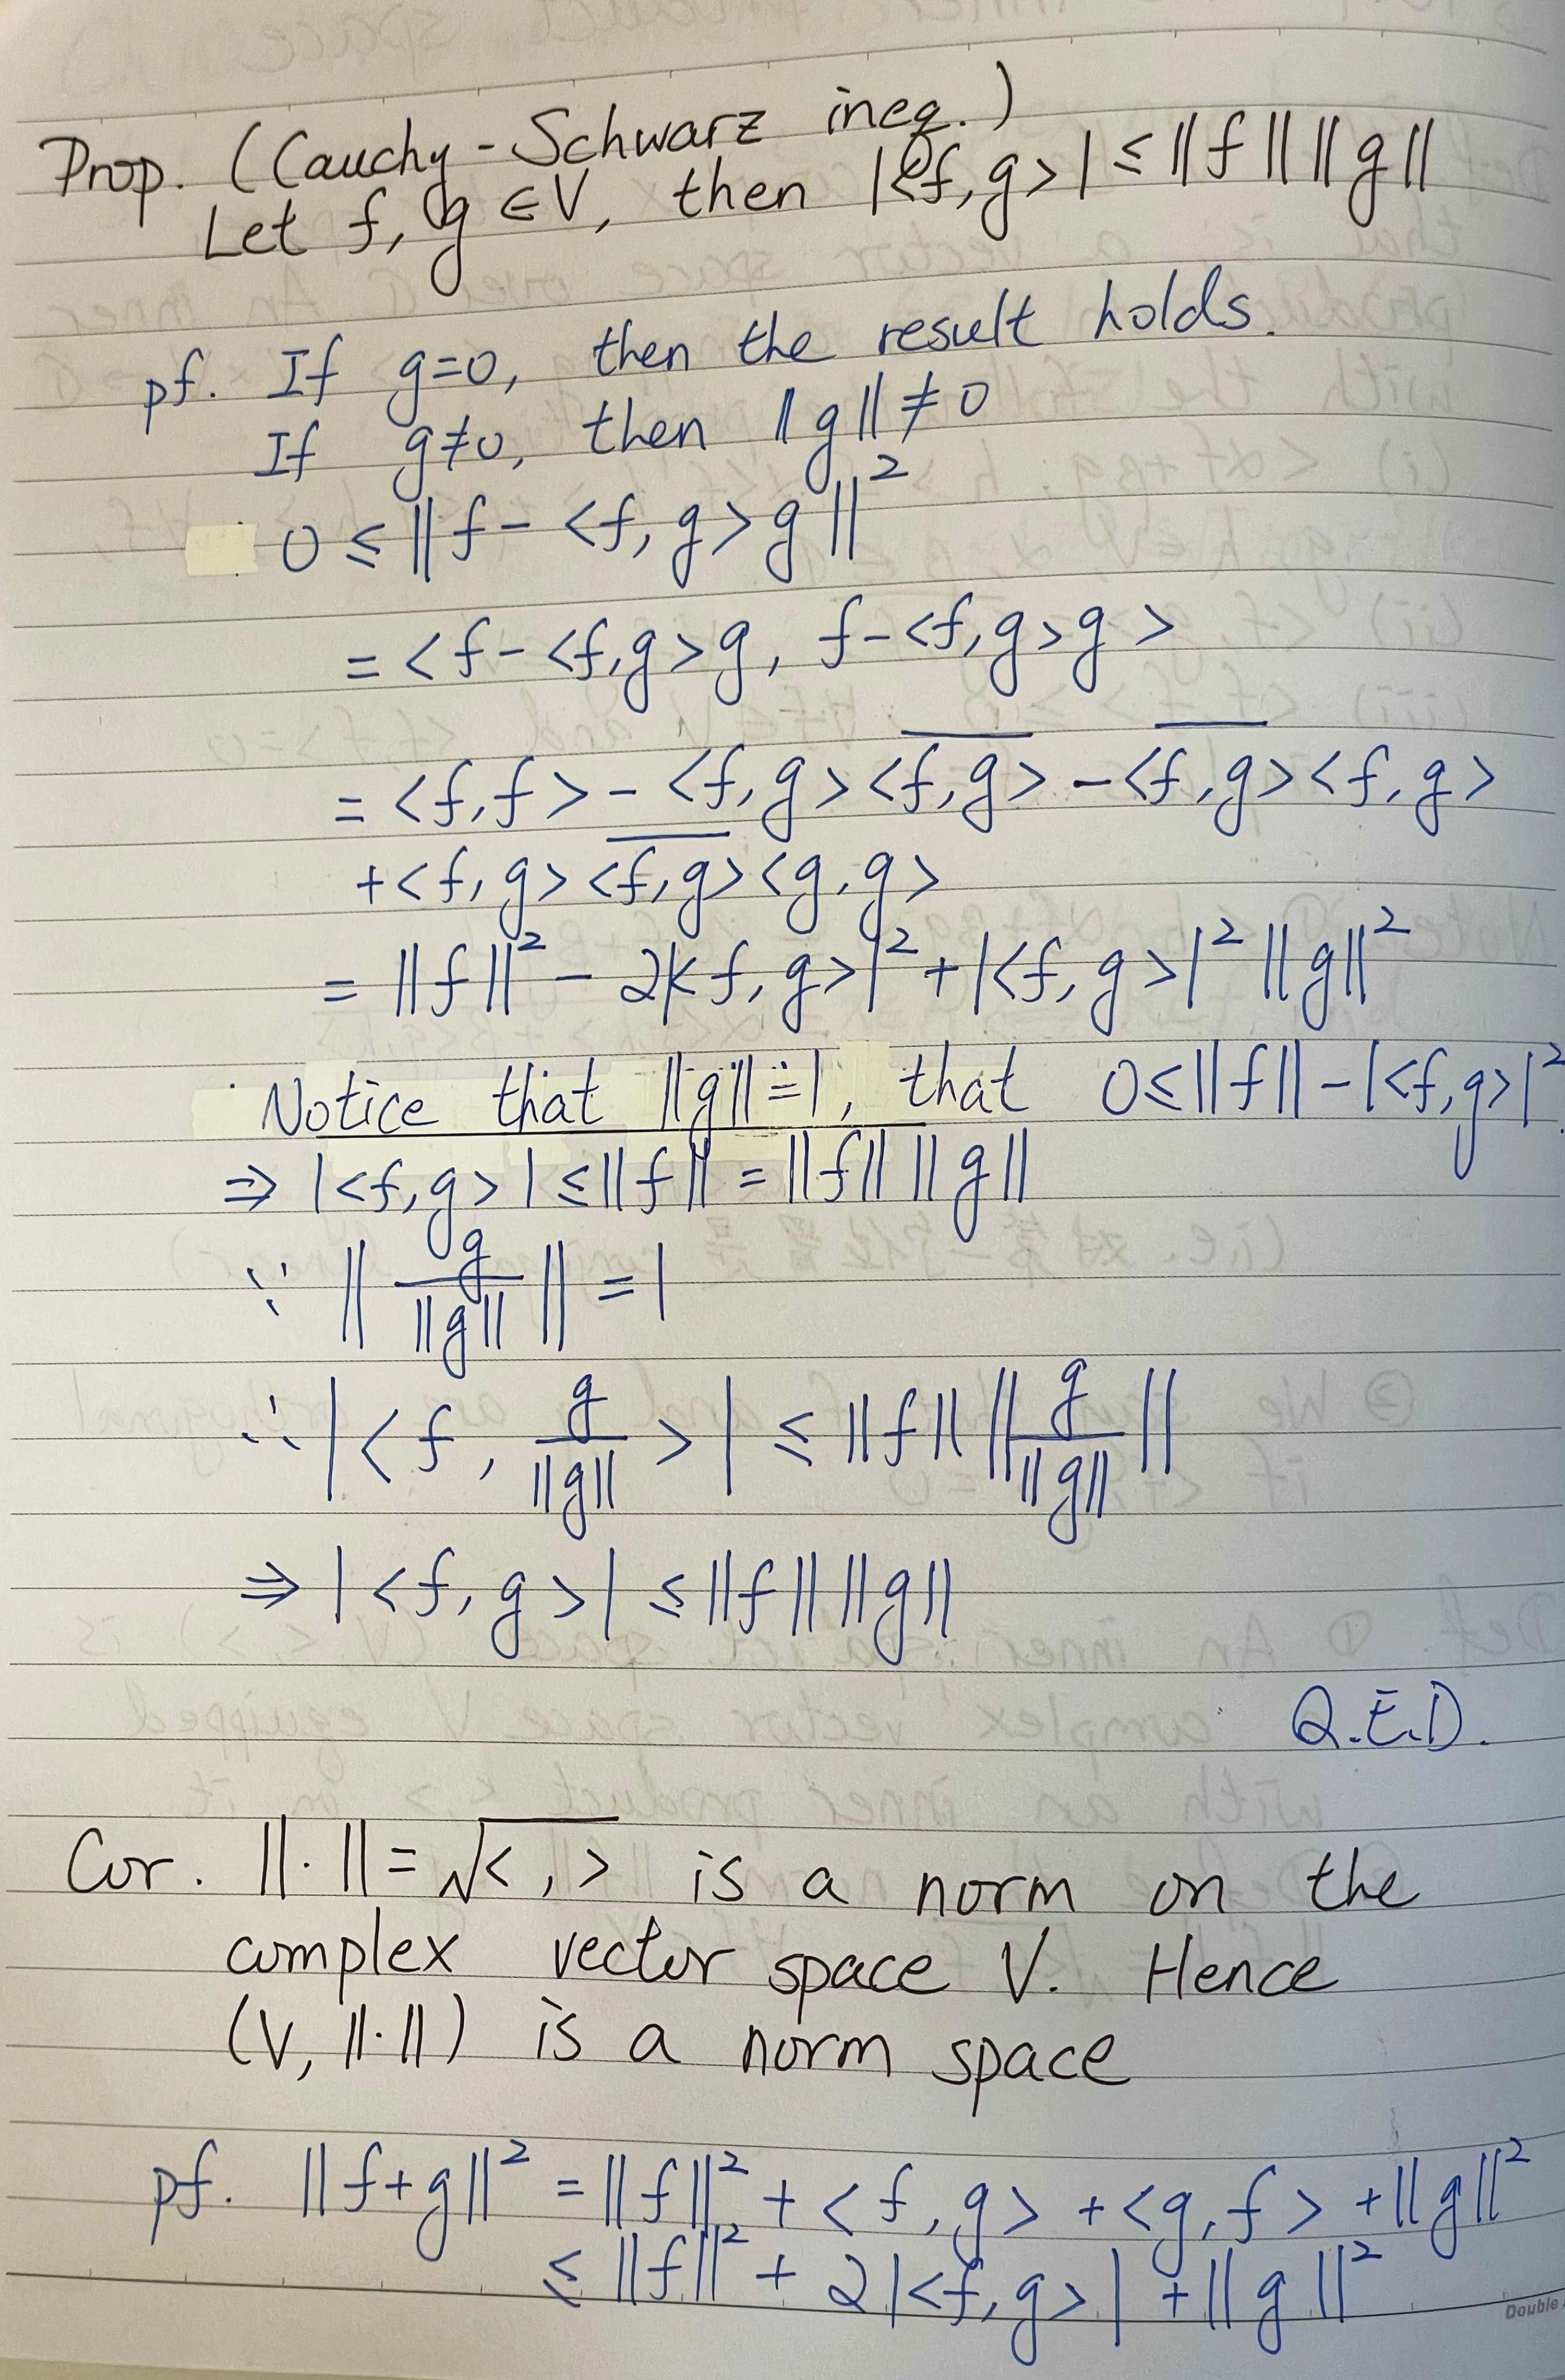 Prop. (Cauchy-Schwarz ineq.)
Let f, g ∈ V, then |<f, g>| ≤ ||f|| ||g||
pf. If g=0, then the result holds.
If g≠0, then ||g|| ≠ 0
0 ≤ ||f - <f, g>g||²
= <f - <f, g>g, f - <f, g>g>
= <f, f> - <f, g> \overline{<f, g>} - \overline{<f, g>} <f, g>
+ <f, g> \overline{<f, g>} <g, g>
= ||f||² - 2|<f, g>|² + |<f, g>|² ||g||²
Notice that ||g|| = 1, that 0 ≤ ||f|| - |<f, g>|²
⇒ |<f, g>| ≤ ||f|| = ||f|| ||g||
∵ || g/||g|| || = 1
∴ |<f, g/||g||>| ≤ ||f|| || g/||g|| ||
⇒ |<f, g>| ≤ ||f|| ||g||
Q.E.D.
Cor. ||·|| = √<,> is a norm on the
complex vector space V. Hence
(V, ||·||) is a norm space
pf. ||f+g||² = ||f||² + <f, g> + <g, f> + ||g||²
≤ ||f||² + 2|<f, g>| + ||g||²
Double